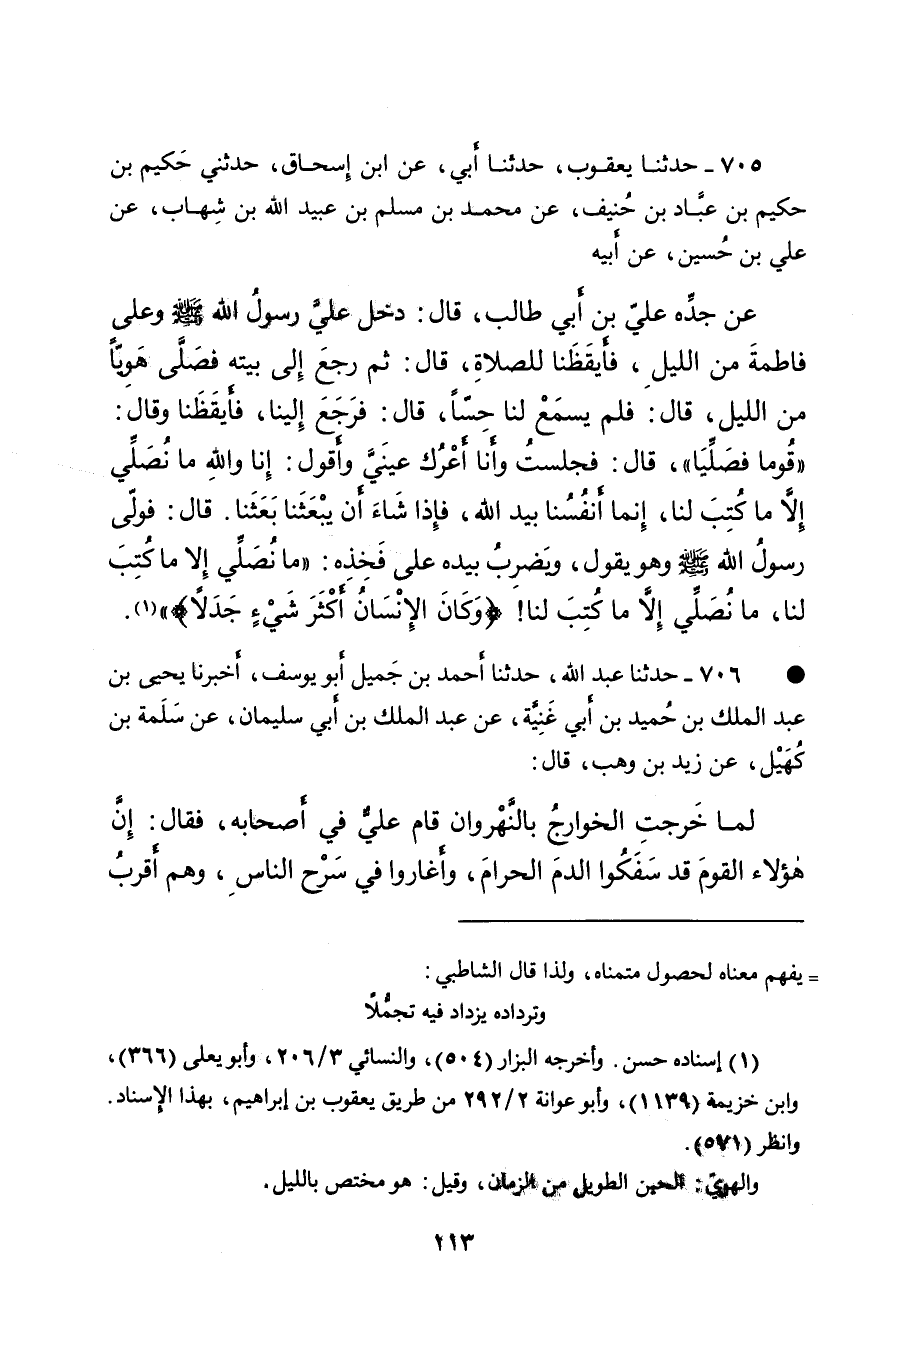 ٧٠٥ ـ حدثنـا يعقـوب، حدثنـا أبي، عن ابن إسحـاق، حدثني حَكيم بن
حكيم بن عبَّـاد بن حُنيف، عن محمـد بن مسلم بن عبيد الله بن شِهـاب، عن
علي بن حُسين، عن أبيه
عن جدِّه عليّ بنِ أبي طالب، قال: دخل عليَّ رسولُ الله ﷺ وعلى
فاطمةَ من الليلِ، فأَيقَظَنا للصلاةِ، قال: ثم رجعَ إلى بيته فصَلَّى هَوِيّاً
من الليل، قال: فلم يسمَعْ لنا حِسّاً، قال: فرَجَعَ إلينا، فأَيقَظَنا وقال:
«قُوما فصَلِّيَا»، قال: فجلستُ وأنا أَعْرُك عينَيَّ وأقول: إنا واللهِ ما نُصَلِّي
إلَّا ما كُتِبَ لنا، إنما أَنفُسُنا بيد الله، فإذا شَاءَ أن يبْعَثَنا بَعَثَنا. قال: فولّى
رسولُ الله ﷺ وهو يقول، ويَضرِبُ بيده على فَخِذِه: «ما نُصَلِّي إلا ما كُتِبَ
لنا، ما نُصَلِّي إلَّا ما كُتِبَ لنا! ﴿وَكَانَ الإِنْسَانُ أَكْثَرَ شَيْءٍ جَدَلًا﴾»(١).
● ٧٠٦ ـ حدثنا عبد الله، حدثنا أحمد بن جَميل أبو يوسف، أخبرنا يحيى بن
عبد الملك بن حُميد بن أبي غَنِيَّة، عن عبد الملك بن أبي سليمان، عن سَلَمة بن
كُهَيْل، عن زيد بن وهب، قال:
لمـا خَرجتِ الخوارجُ بالنَّهْروان قام عليٌّ في أصحابه، فقال: إنَّ
هٰؤلاء القومَ قد سَفَكُوا الدمَ الحرامَ، وأَغاروا في سَرْحِ الناسِ، وهم أَقربُ
= يفهم معناه لحصول متمناه، ولذا قال الشاطبي:
وترداده يزداد فيه تجمُّلًا
(١) إسناده حسن. وأخرجه البزار (٥٠٤)، والنسائي ٢٠٦/٣، وأبو يعلى (٣٦٦)،
وابن خزيمة (١١٣٩)، وأبو عوانة ٢٩٢/٢ من طريق يعقوب بن إبراهيم، بهذا الإسناد.
وانظر (٥٧١).
والهويّ: الحين الطويل من الزمان، وقيل: هو مختص بالليل.
٢١٣